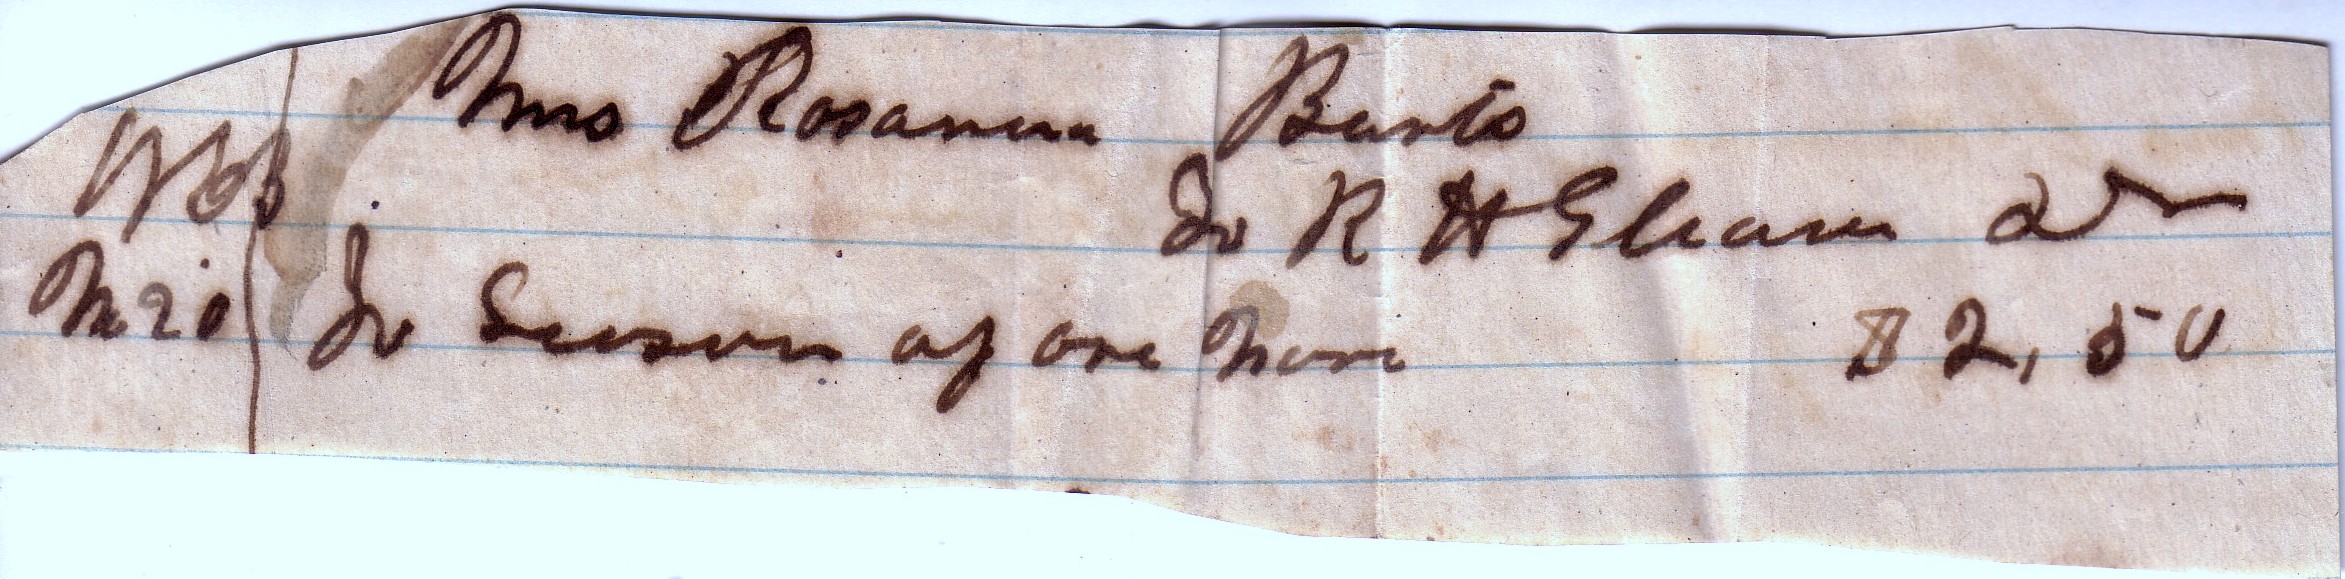 Mrs Rosanna Barts
To R H Gham Dr
M 20 To Season of one Mare $2,50